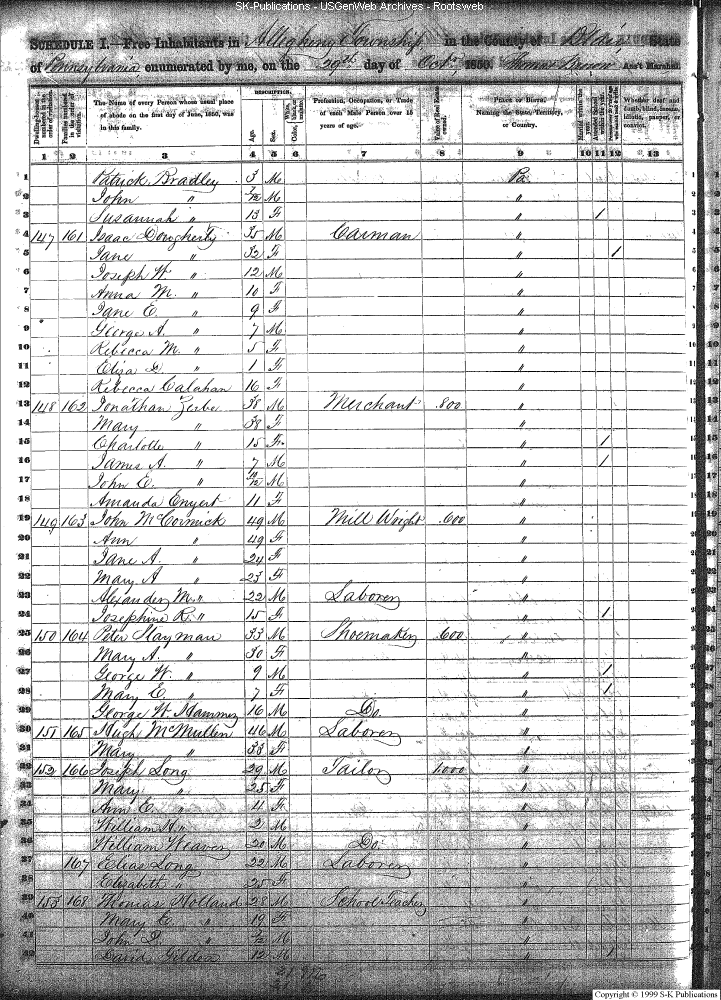 SK-Publications - USGenWeb Archives - Rootsweb
SCHEDULE I.—Free Inhabitants in Allegheny Township in the County of State
of Pennsylvania enumerated by me, on the 29th day of Octr 1850. Ass't Marshal.
Dwelling-houses numbered in the order of visitation. Families numbered in the order of visitation. The Name of every Person whose usual place of abode on the first day of June, 1850, was in this family. DESCRIPTION. Age. Sex. Profession, Occupation, or Trade of each Male Person over 15 years of age. Value of Real Estate owned. Place of Birth, Naming the State, Territory, or Country. Whether deaf and dumb, blind, insane, idiotic, pauper, or convict.
1 2 3 4 5 6 7 8 9 10 11 12 13
1 Patrick Bradley 3 M Pa 1
2 John " /12 M " 2
3 Susannah " 13 F " / 3
4 147 161 Isaac Dougherty 35 M Carman " 4
5 Jane " 32 F " / 5
6 Joseph W. " 12 M " 6
7 Anna M. " 10 F " 7
8 Jane E. " 9 F " 8
9 George A. " 7 M " 9
10 Rebecca M. " 5 F " 10
11 Eliza " 1 F " 11
12 Rebecca Calahan 16 F " 12
13 148 162 Jonathan Zerbe 38 M Merchant 800 " 13
14 Mary " 38 F " 14
15 Charlotte " 15 F " /
16 James A. " 7 M " /
17 John E. " /12 M "
18 Amanda Enyert 11 F "
19 149 163 John McCormick 49 M Mill Wright 600 "
20 Ann " 49 F "
21 Jane A. " 24 F "
22 Mary A " 23 F "
23 Alexander M. " 22 M Laborer "
24 Josephine R. " 15 F " /
25 150 164 Peter Stayman 33 M Shoemaker 600 "
26 Mary A. " 30 F "
27 George W. " 9 M " /
28 Mary E. " 7 F " /
29 George W. Hammer 16 M Do. "
30 151 165 Hugh McMullen 46 M Laborer "
31 Mary " 33 F "
32 152 166 Joseph Long 29 M Tailor 1.000 "
33 Mary " 25 F "
34 Ann E. " 4 F "
35 William H. " 2 M "
36 William Weaver 20 M Do. "
37 167 Elias Long 22 M Laborer "
38 Elizabeth " 25 F "
39 153 168 Thomas Holland 28 M School Teacher "
40 Mary E. " 19 F "
41 John " /12 M "
42 David Gelden 12 M " /
Copyright © 1999 S-K Publications